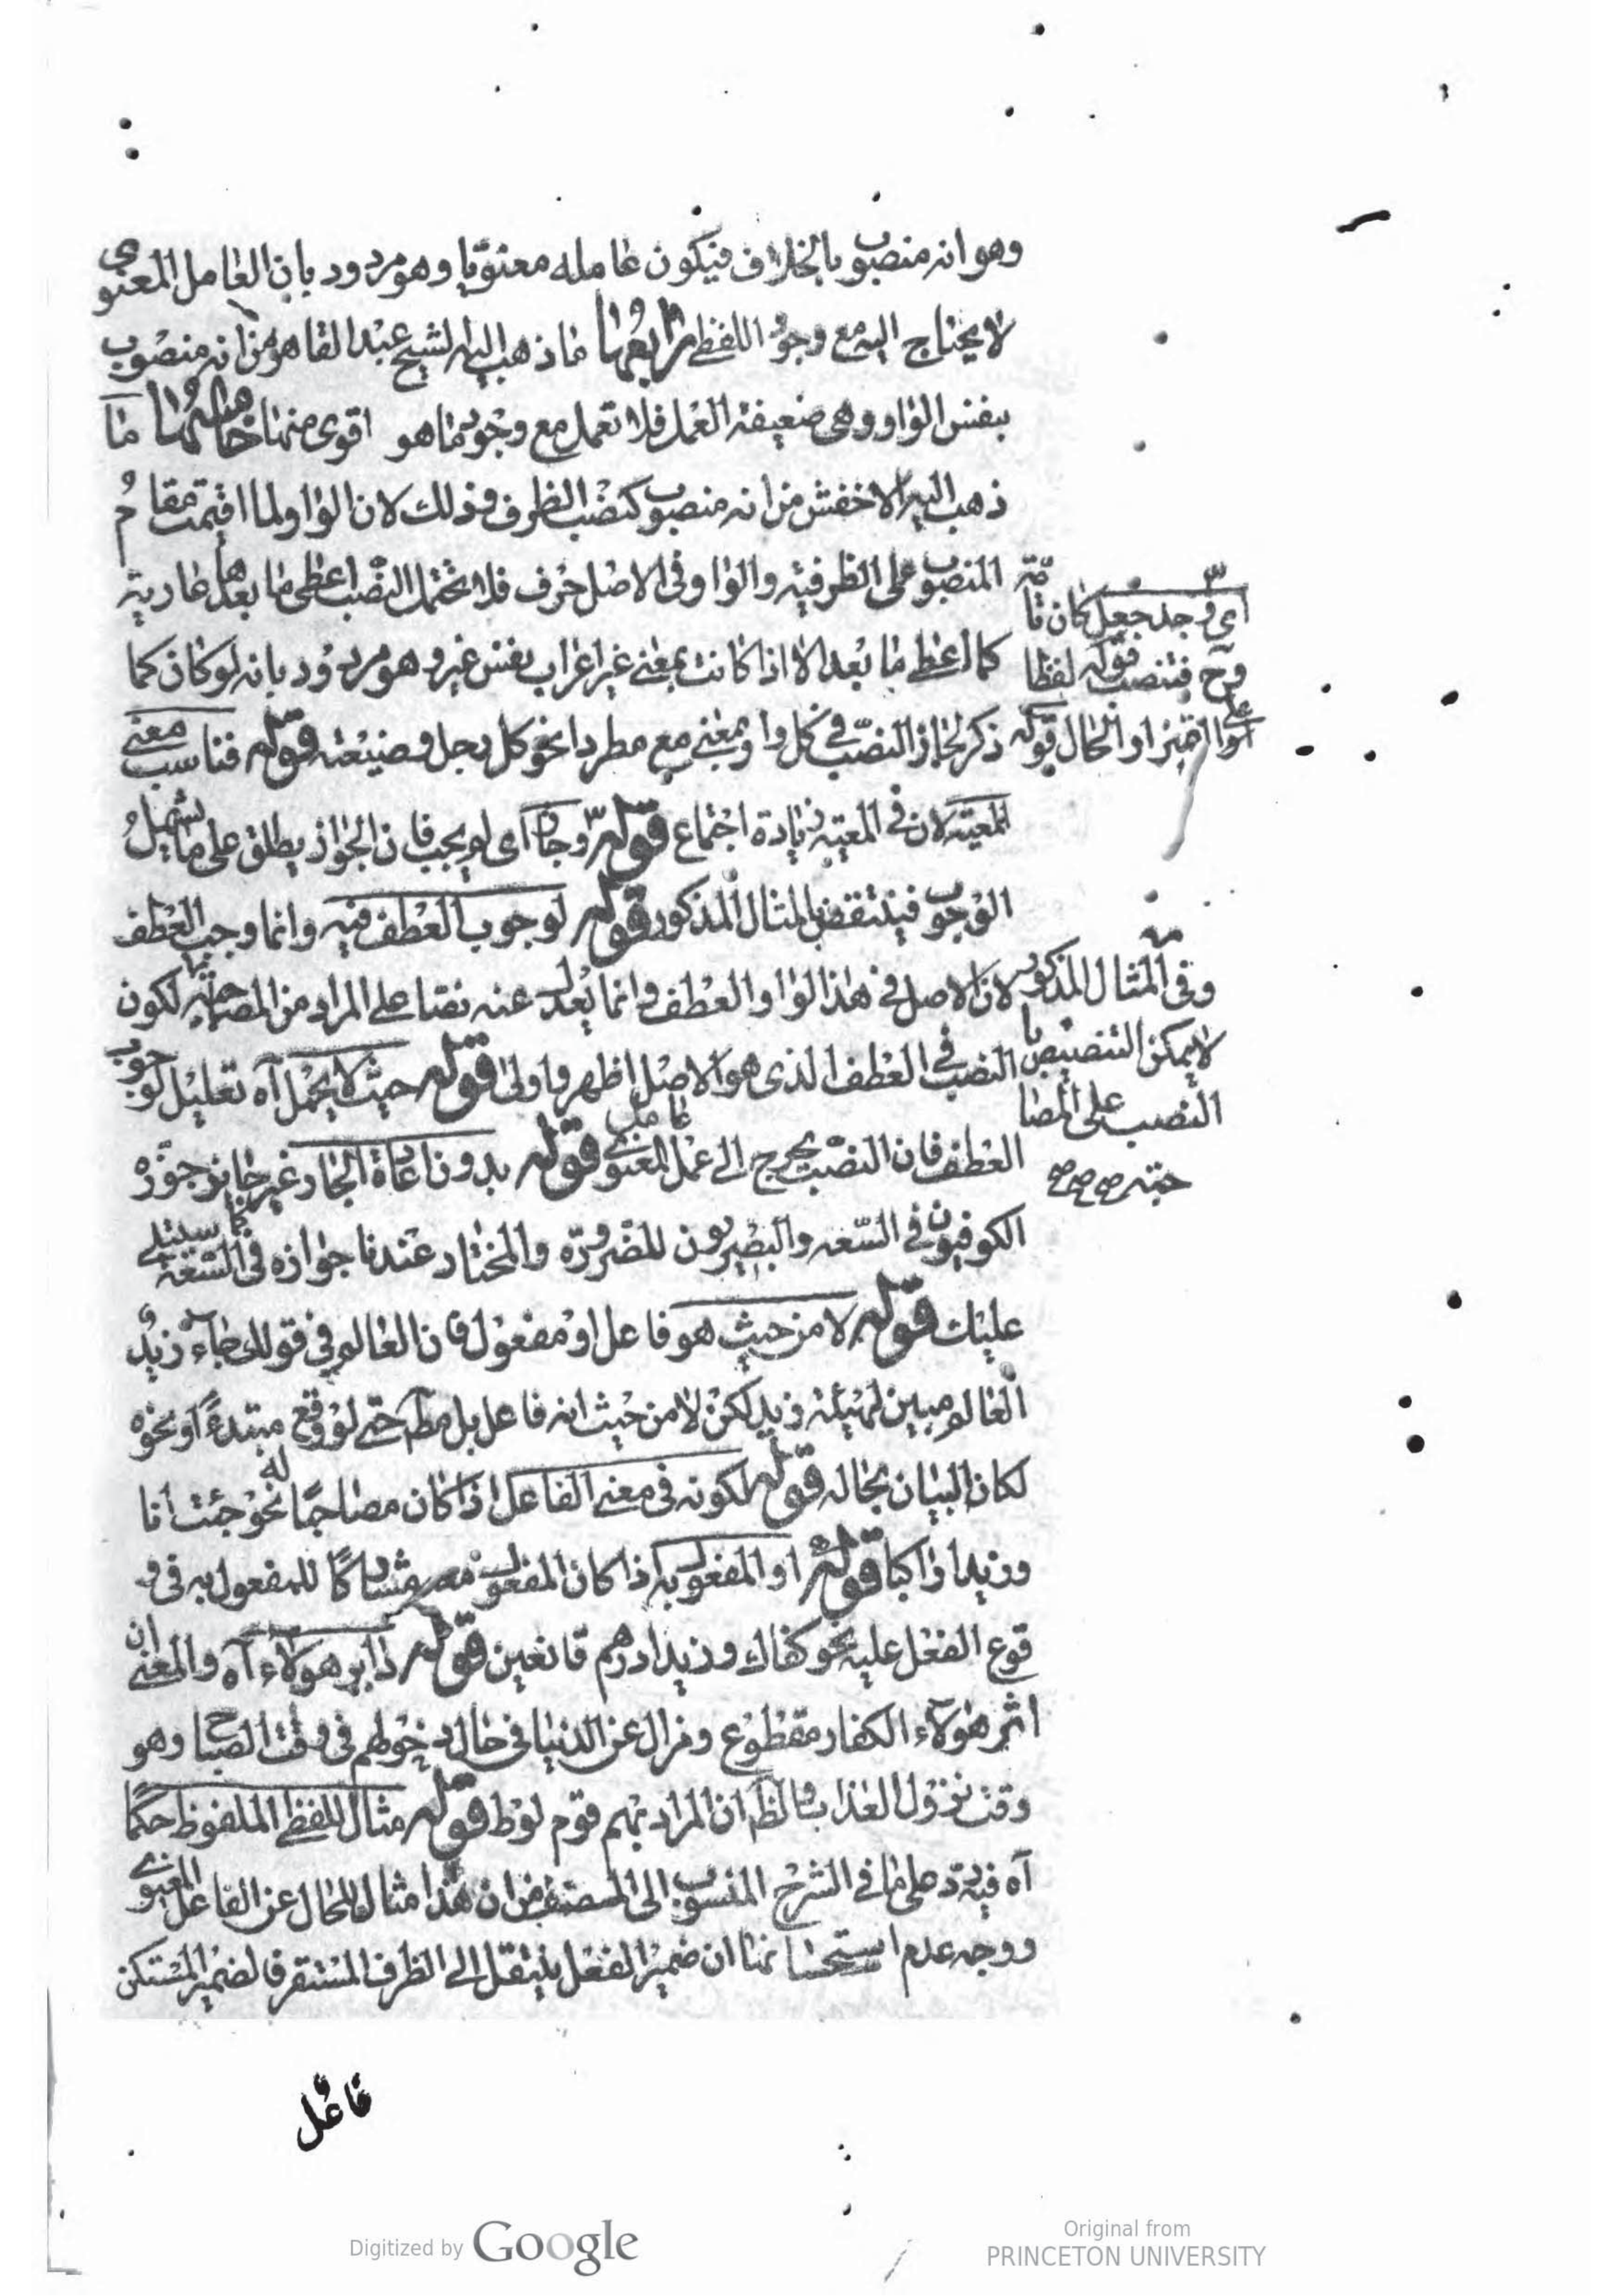 وهو انه منصوب بالخلاف فيكون عامله معنويا وهو مردود بان العامل المعنوى
لا يحتاج اليه مع وجود اللفظى رابعها ما ذهب اليه الشيخ عبد القاهر من انه منصوب
بنفس الواو وهى ضعيفة العمل فلا تعمل مع وجود ما هو اقوى منها خامسها ما
ذهب اليه الاخفش من انه منصوب كنصب الظرف وذلك لان الواو لما اقيمت مقام
المنصوب على الظرفية والواو فى الاصل حرف فلا تحتمل النصب اعطى ما بعدها عارية
كما اعطى ما بعد الا اذا كانت بمعنى غير اعراب نفس غير وهو مردود بانه لو كان كما
ذكر لجاز النصب فى كل واو بمعنى مع مطردا نحو كل رجل وضيعته قوله فناسب معنى
المعية لان فى المعية زيادة اجتماع قوله وجاز اى لم يجب فان الجواز يطلق على ما يشمل
الوجوب فينتقض بالمثال المذكور قوله لوجوب العطف فيه وانما وجب العطف
لان الاصل فى هذا الواو العطف وانما يعدل عنه نصا على المراد من المصاحبة لكون
النصب فى العطف الذى هو الاصل اظهر واولى قوله حيث لا يحمل آه تعليل لوجوب
العطف فان النصب يحوج الى عمل عامل المعنوى قوله بدون اعادة الجار غير جايز جوزه
الكوفيون فى السعة والبصريون للضرورة والمختار عندنا جوازه فى السعة كما سيتلى
عليك قوله لا من حيث هو فاعل او مفعول فان العالم فى قولك جاء زيد
العالم مبين لهيئة زيد لكن لا من حيث انه فاعل بل مط حتى لو وقع مبتدءً او نحوه
لكان البيان بحاله قوله لكونه فى معنى الفاعل اذا كان مصاحبًا له نحو جئت انا
وزيدا راكبا قوله او المفعول به اذا كان المفعول معه مشاركًا للمفعول به فى و
قوع الفعل عليه نحو كفاك وزيدا درهم قانعين قوله دابر هولاء آه والمعنى ان
اثر هولآء الكفار مقطوع وزال عن الدنيا فى حال دخولهم فى وقت الصباح وهو
وقت نزول العذاب والظ ان المراد بهم قوم لوط قوله مثال للفظى الملفوظ حكمًا
آه فيه رد على ما فى الشرح المنسوب الى المصنف من ان هذا مثال للحال عن الفاعل المعنوى
ووجه عدم استحسا ان ضمير الفعل ينتقل الى الظرف المستقر فالضمير المستكن
اى وجد جعل كان تامة
وح فتنصب قوله لفظا
على التميز او الحال قوله
وفى المثال المذكور
لا يمكن التنصيص با
النصب على المصا
حبته صح صح صح
فاعل
Digitized by Google
Original from
PRINCETON UNIVERSITY